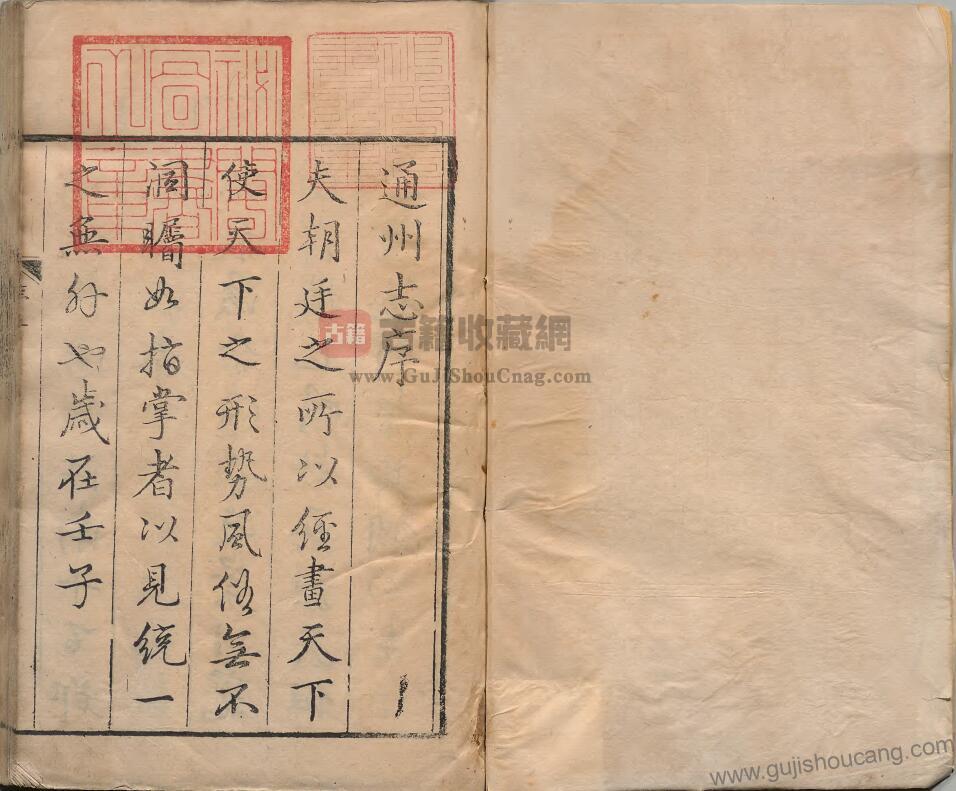 通州志序
夫朝廷之所以經畫天下
使天下之形勢風俗無不
洞矚如指掌者以見統一
之無外也歲在壬子
古籍
古籍收藏網
www.GuJiShouCnag.com
www.gujishoucang.com